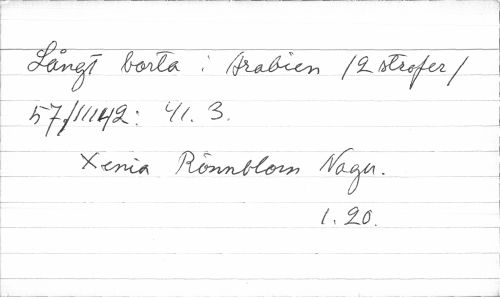 Långt borta i Arabien /2 strofer/
57/11142: 41. 3.
Xenia Rönnblom Nagu.
1.20.